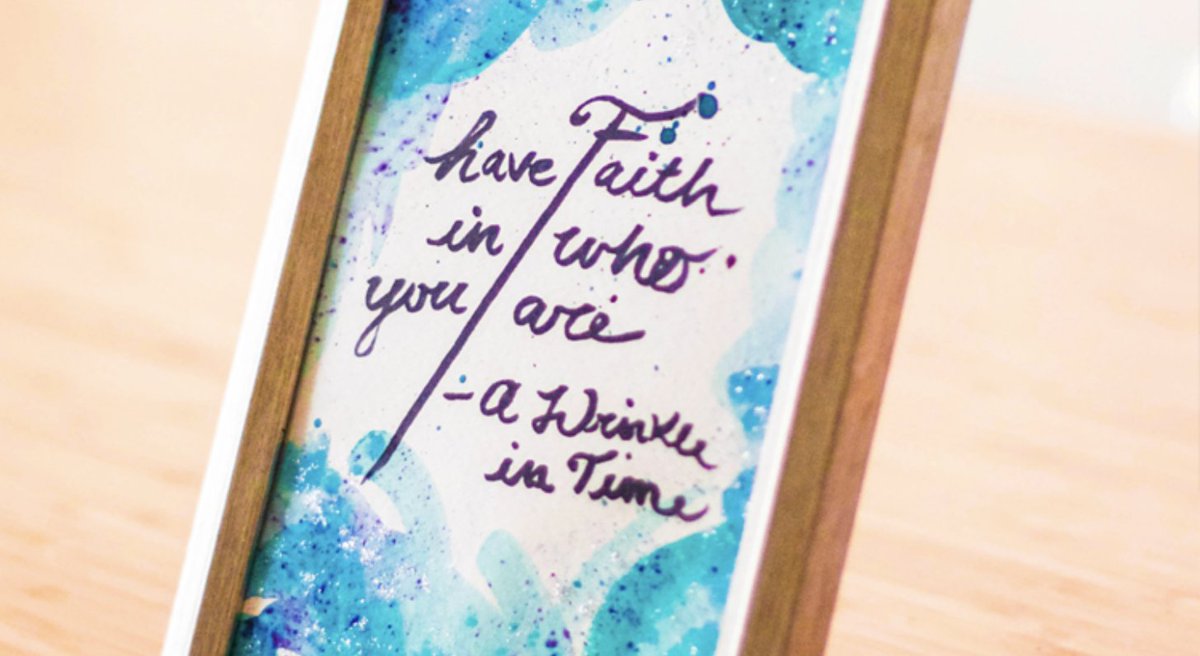 have Faith
in who
you are
-A Wrinkle
in Time